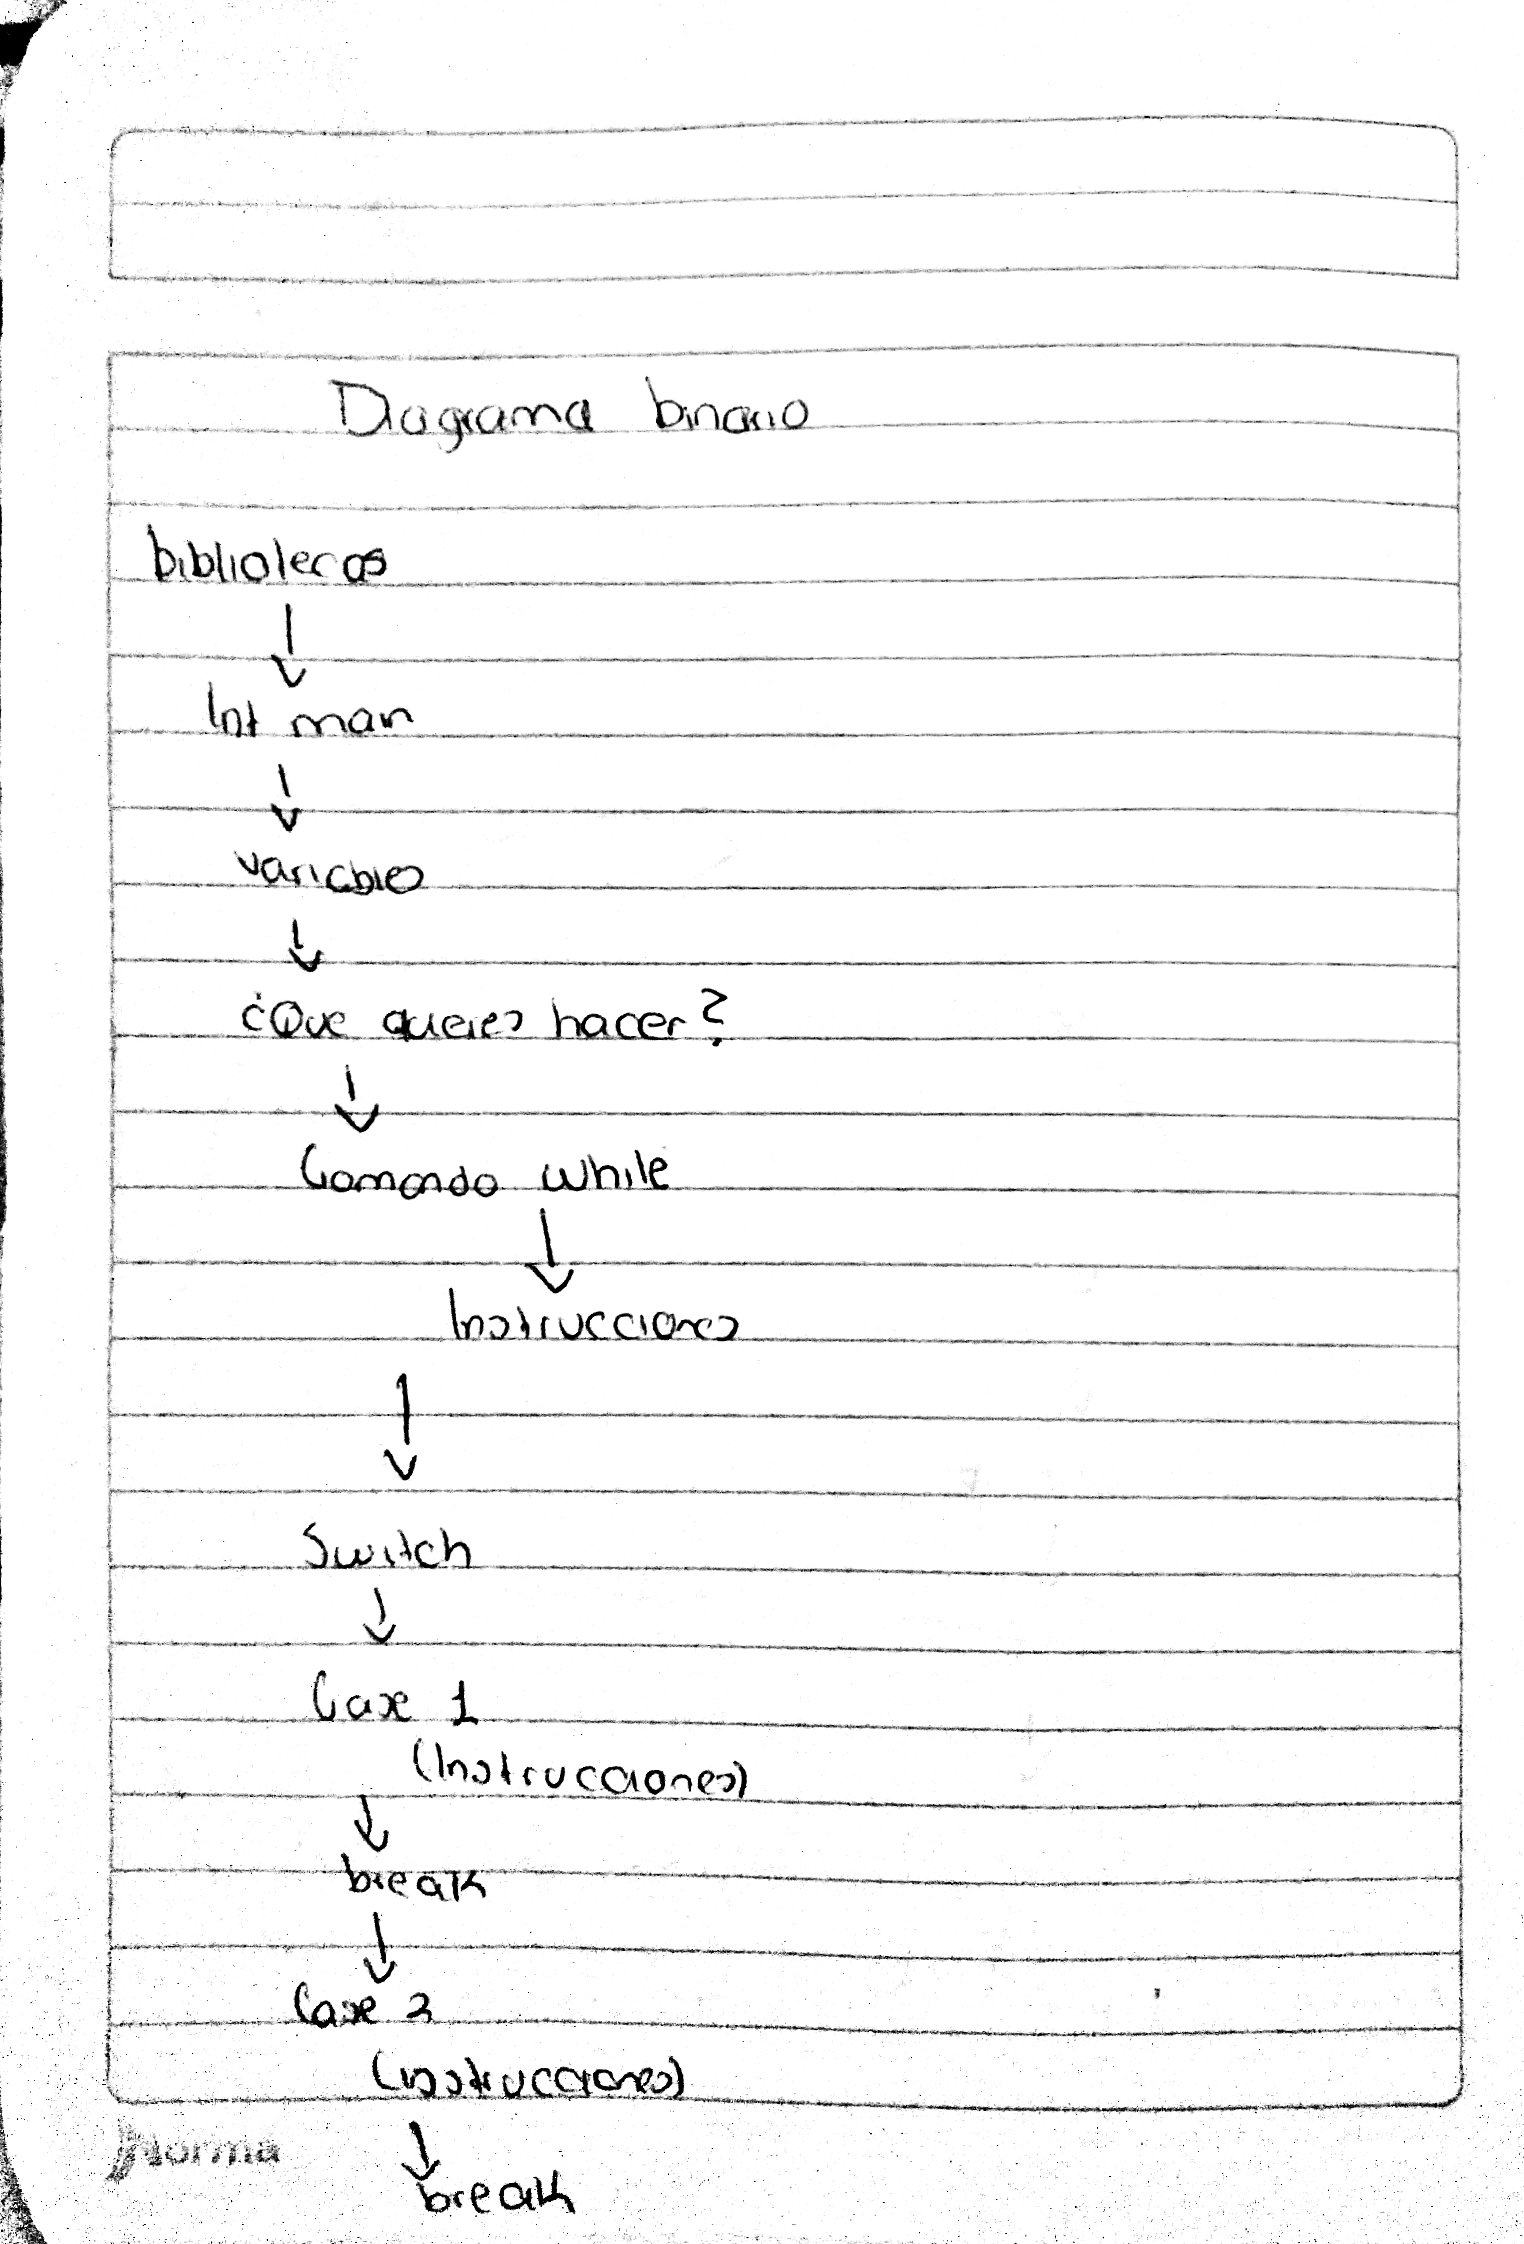 Diagrama binario
bibliotecas
Int main
variables
¿Que quieres hacer?
Comando while
Instrucciones
Switch
Case 1
(Instrucciones)
break
Case 2
(instrucciones)
break
Norma